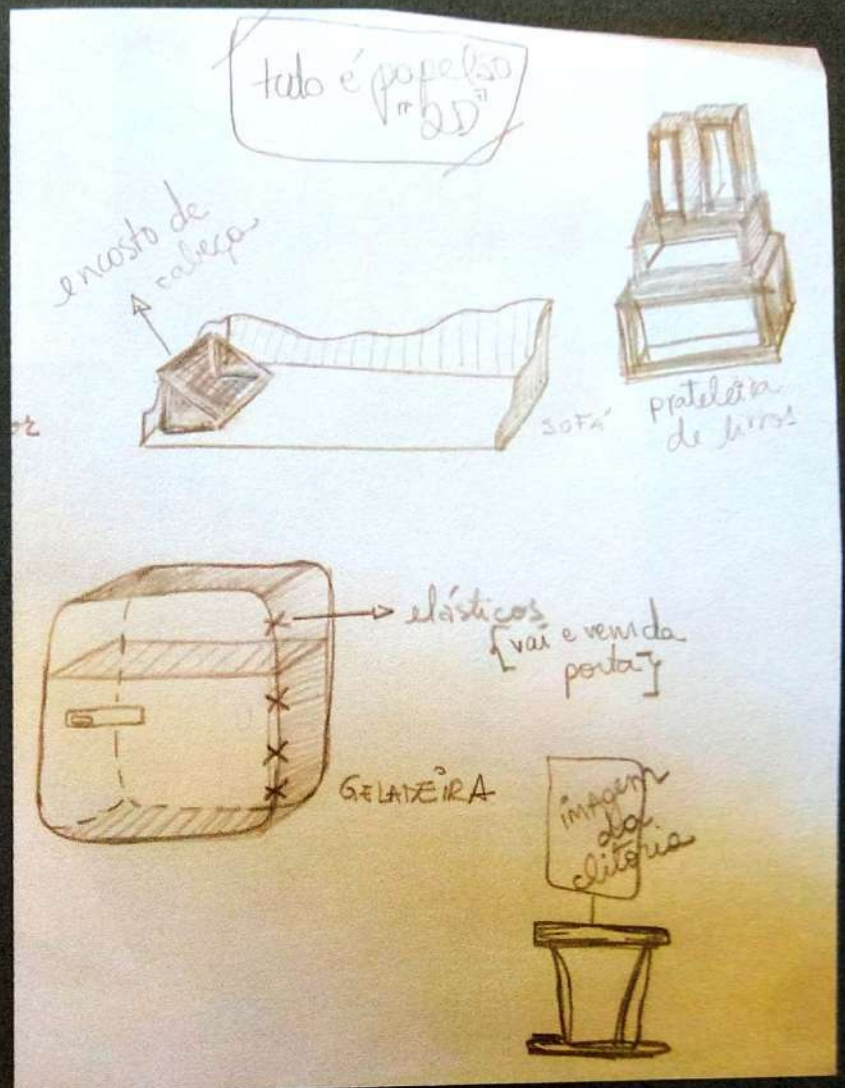 tudo é papelão
"2D"
encosto de
cabeça
SOFÁ
prateleira
de livros
elásticos
[vai e vem da
porta]
GELADEIRA
imagem
da
clitória